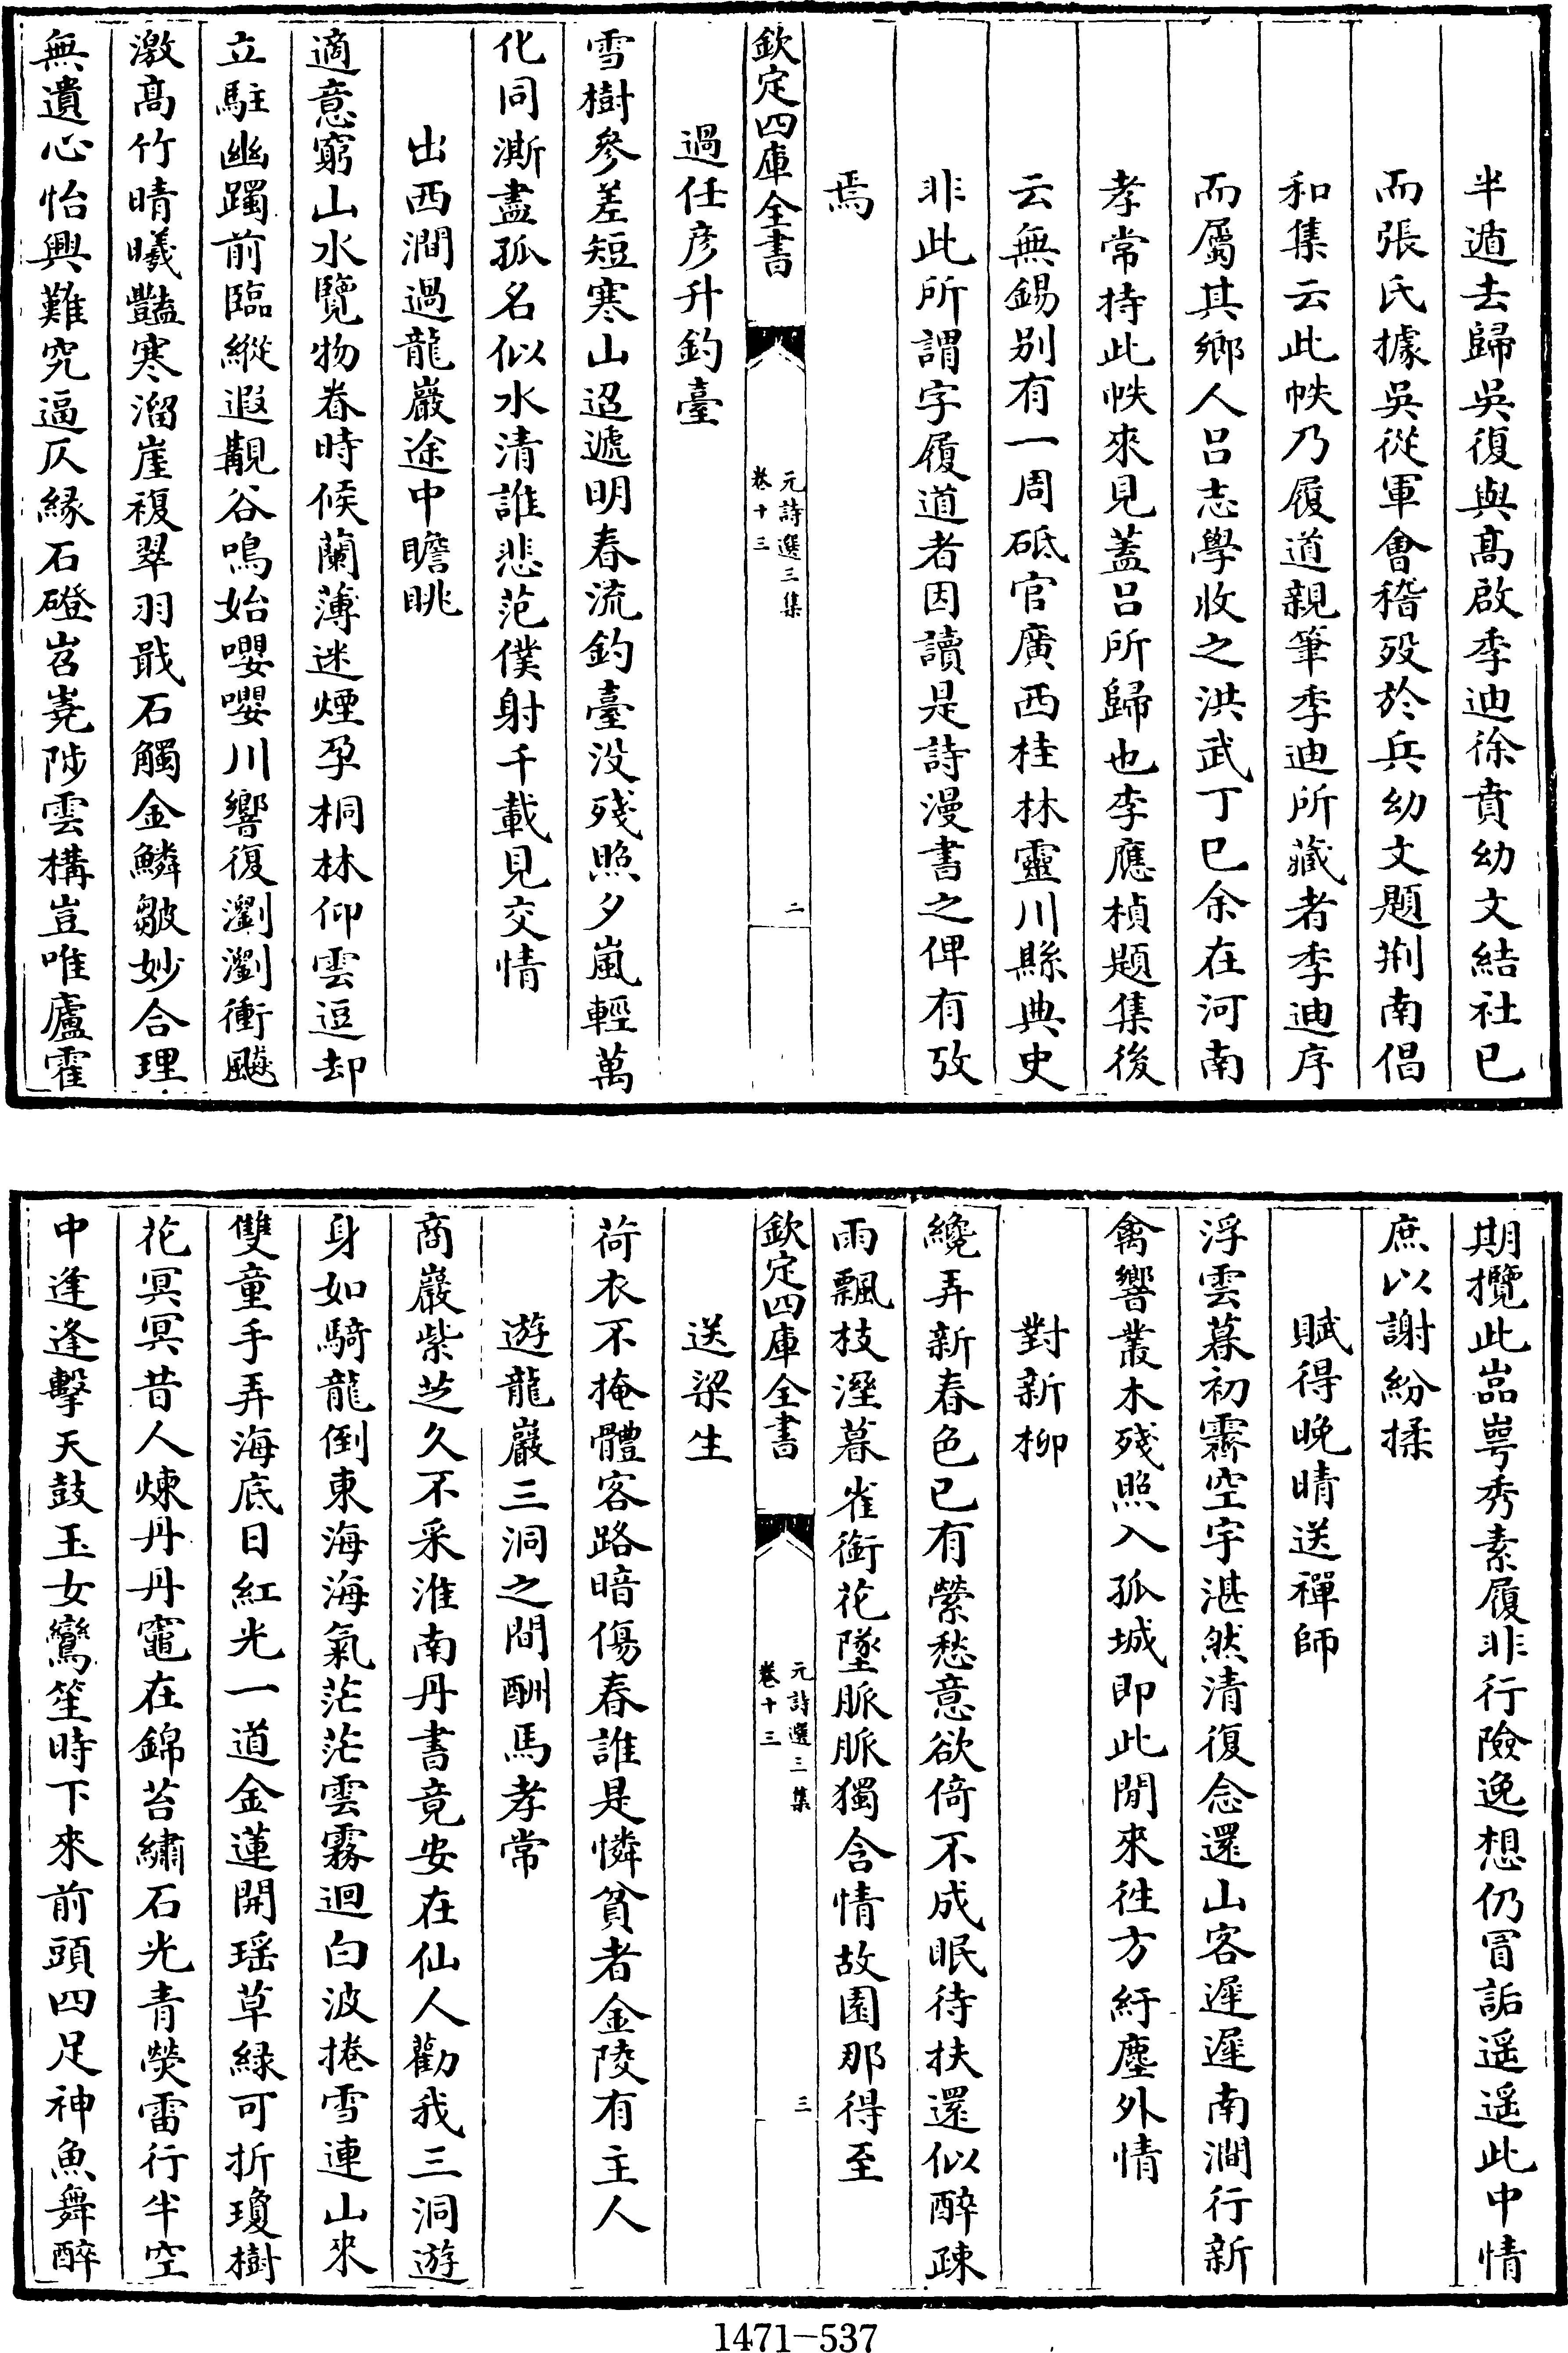 半遁去歸吳復與髙啟季迪徐賁幼文結社已
而張氏據吳從軍會稽殁於兵幼文題荆南倡
和集云此帙乃履道親筆季迪所藏者季迪序
而屬其鄉人吕志學收之洪武丁巳余在河南
孝常持此帙來見蓋吕所歸也李應楨題集後
云無錫别有一周砥官廣西桂林靈川縣典史
非此所謂字履道者因讀是詩漫書之俾有攷
焉
欽定四庫全書
元詩選三集
卷十三
二
過任彦升釣臺
雪樹參差短寒山迢遞明春流釣臺没殘照夕嵐輕萬
化同澌盡孤名似水清誰悲范僕射千載見交情
出西澗過龍巖途中瞻眺
適意窮山水覽物眷時候蘭薄迷煙孕桐林仰雲逗却
立駐幽躅前臨縱遐覯谷鳴始嚶嚶川響復瀏瀏衝飇
激髙竹晴曦豔寒溜崖複翠羽戢石觸金鱗皺妙合理
無遺心怡興難究逼仄緣石磴岧嶤陟雲構豈唯廬霍
期攬此嵓崿秀素履非行險逸想仍冒詬遥遥此中情
庶以謝紛揉
賦得晚晴送禪師
浮雲暮初霽空宇湛然清復念還山客遲遲南澗行新
禽響叢木殘照入孤城即此閒來徃方紆塵外情
對新柳
纔弄新春色已有縈愁意欲倚不成眠待扶還似醉疎
雨飄枝溼暮雀銜花墜脈脈獨含情故園那得至
欽定四庫全書
元詩選三集
卷十三
三
送梁生
荷衣不掩體客路暗傷春誰是憐貧者金陵有主人
遊龍巖三洞之間酬馬孝常
商巖紫芝久不采淮南丹書竟安在仙人勸我三洞遊
身如騎龍倒東海海氣茫茫雲霧迴白波捲雪連山來
雙童手弄海底日紅光一道金蓮開瑶草緑可折瓊樹
花冥冥昔人煉丹丹竈在錦苔繡石光青熒雷行半空
中逢逢擊天鼓玉女鸞笙時下來前頭四足神魚舞醉
1471-537